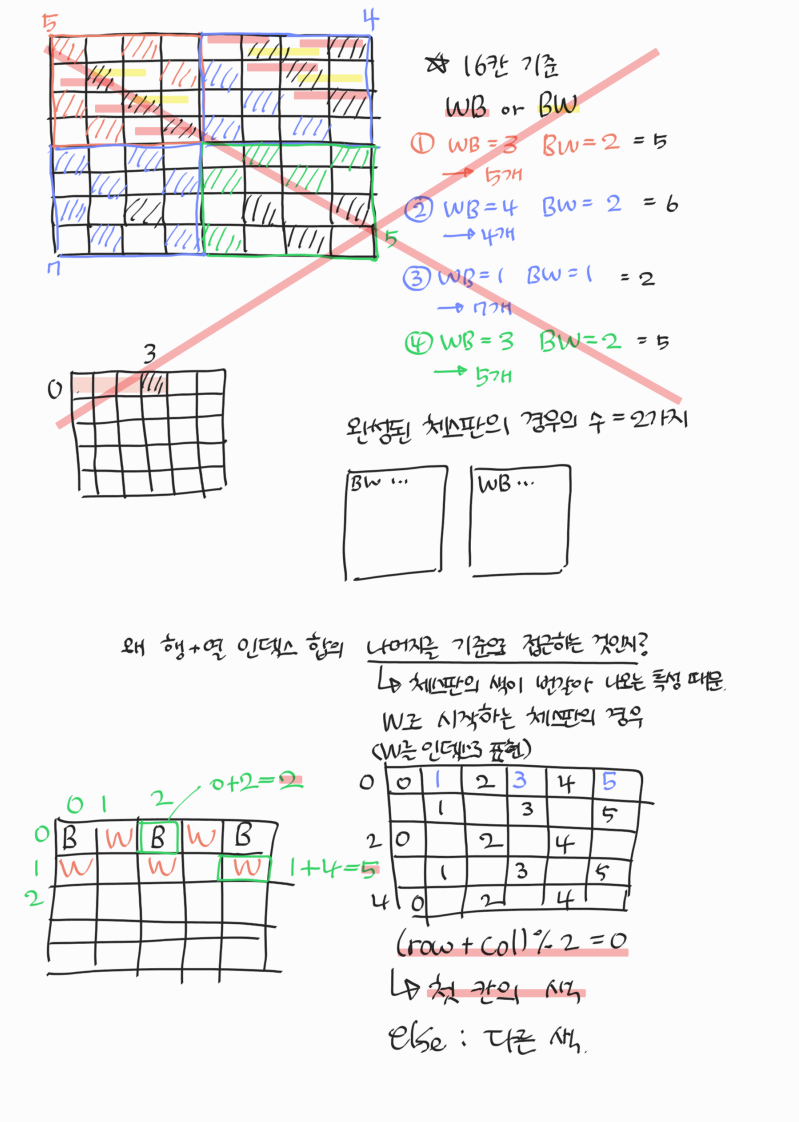 5 4
☆ 16칸 기준
WB or BW
① WB = 3 BW = 2 = 5
→ 5개
② WB = 4 BW = 2 = 6
→ 4개
5
③ WB = 1 BW = 1 = 2
7
→ 7개
④ WB = 3 BW = 2 = 5
→ 5개
3
0
완성된 체스판의 경우의 수 = 2가지
BW ... WB ...
왜 행+열 인덱스 합의 나머지를 기준으로 접근하는 것인지?
↳ 체스판의 색이 번갈아 나오는 특성 때문.
W로 시작하는 체스판의 경우
(W를 인덱스로 표현)
0 0 1 2 3 4 5
1 3 5
2 0 2 4
1 3 5
4 0 2 4
0 1 2 0+2=2
0 B W B W B
1 W W W 1+4=5
2
(row + col) % 2 = 0
↳ 첫 칸의 색
else : 다른 색.